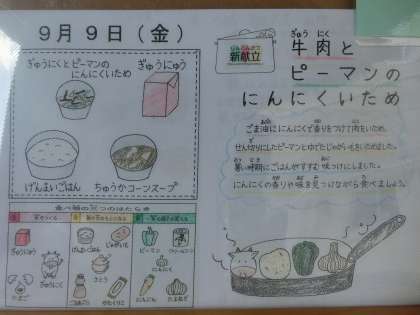 9月9日（金）
ぎゅうにくとピーマンの
にんにくいため
ぎゅうにゅう
げんまいごはん
ちゅうかコーンスープ
新献立
ぎゅう にく
牛肉と
ピーマンの
にんにくいため
ごま油ににんにくで香りをつけて肉をいため、
せん切りにしたピーマンとゆでたじゃがいもをいためました。
暑い時期にごはんがすすむ味つけにしました。
にんにくの香りや味を見つけながら食べましょう。
食べ物の三つのはたらき
ぎゅうにゅう
ぎゅうにく
げんまいごはん
じゃがいも
さとう
ごまあぶら
かたくりこ
ピーマン
にんにく
にんじん
たまねぎ